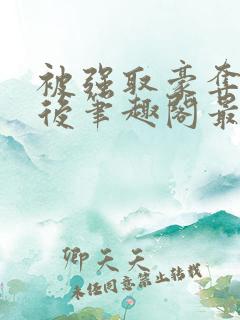 被强取豪夺
後笔趣阁最
卿天天
未经同意禁止转载